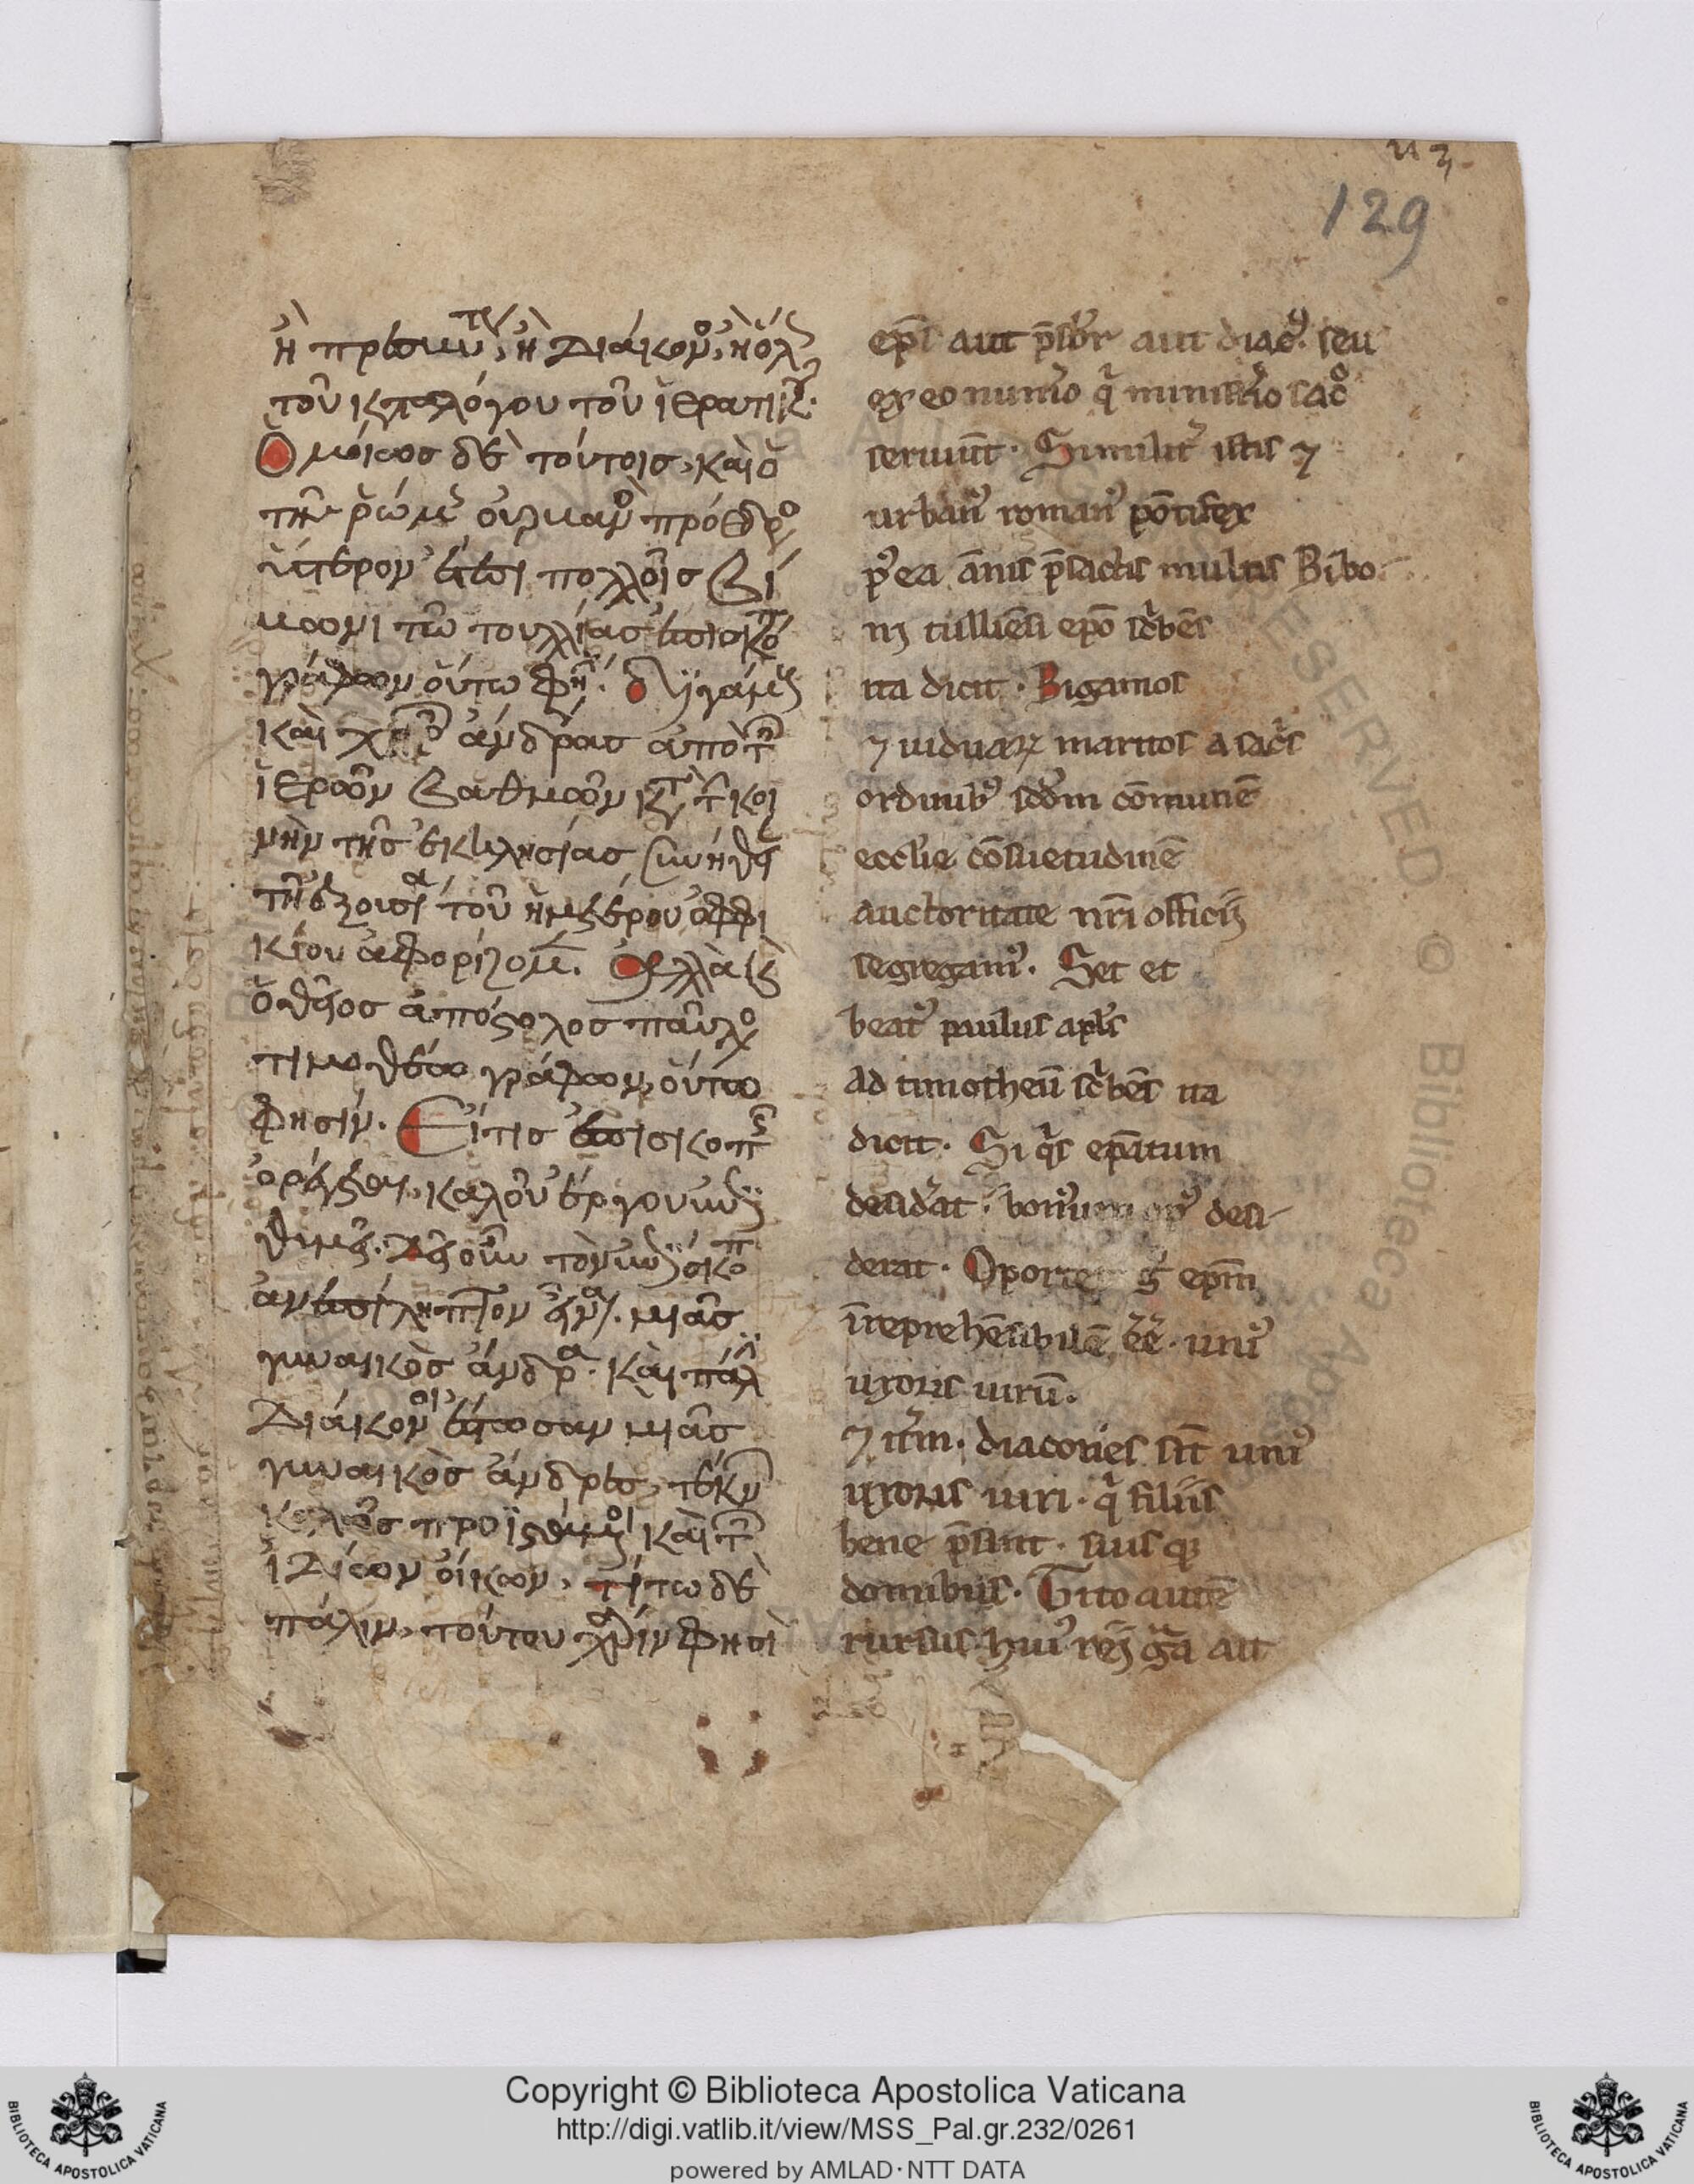 129
ἢ πρεσβυτ, ἢ Διάκον, ἢ ὅλ
τοῦ καταλόγου τοῦ ἱερατικ.
Ὁμοίως δὲ τούτοις, καὶ ὁ
τὴν ῥώμ πρόεδρ
ὕστερον ἔτεσι πολλοῖς Βί
βωνι τῶ τουλλίας ἐπισκόπ
γράφων οὕτω φη. διγάμους
καὶ χηρ ἄνδρας ἀπὸ τ
ἱερῶν βαθμῶν κτ τ κοι
νὴν τῆς ἐκκλησίας συνήθ
τῆ ἐξουσία τοῦ ἡμετέρου ὀφφι
κίου ἀφορίζομ. ἀλλὰ κ
ὁ θεῖος ἀπόστολος παῦλο
τιμοθέω γράφων, οὕτω
φησίν. Εἴ τις ἐπισκοπῆς
ὀρέγεται, καλοῦ ἔργου ἐπι
θυμεῖ. δεῖ οὖν τὸν ἐπίσκοπ
ἀνεπίληπτον εἶνα. μιᾶς
γυναικὸς ἄνδρα. καὶ πάλ
Διάκονοι ἔστωσαν μιᾶς
γυναικὸς ἄνδρες, τέκν
καλῶς προϊστάμενοι καὶ τ
ἰδίων οἴκων, τίτω δὲ
πάλιν, τούτου χάριν φησὶ
ep̄s aut p̄sbr aut diac᷒. seu
ex eo num̄o q̄ minist̄io sac͛o
seruiūt. Similit᷒ istis ⁊
urban᷒ roman᷒ pōtifex
p᷒ ea ānis p̄sactis multis Bibo
nj tulliēsi ep̄o sc͛bēs
ita dicit. Bigamos
⁊ uiduaꝝ maritos a sac͛s
ordinib᷒ scd̄m cōmunē
eccl̄ie cōsuetudinē
auctoritate nr̄i officij
segregam᷒. Set et
beat᷒ paulus apl̄s
ad timotheū sc͛bēs ita
dicit. Si q͛s ep̄atum
desid͛at. bonum op᷒ desi-
derat. Oportet g͛ ep̄m
īreprehēsibilē ēē. uni᷒
uxoris uirū.
⁊ it͛m. diacones sīt uni᷒
uxoris uiri. q͛ filiis
bene p̄sint. suisqꝫ
domibus. Tito autē
rursus hui᷒ rej gr̄a ait
Copyright © Biblioteca Apostolica Vaticana
http://digi.vatlib.it/view/MSS_Pal.gr.232/0261
powered by AMLAD·NTT DATA
BIBLIOTECA APOSTOLICA VATICANA
BIBLIOTECA APOSTOLICA VATICANA